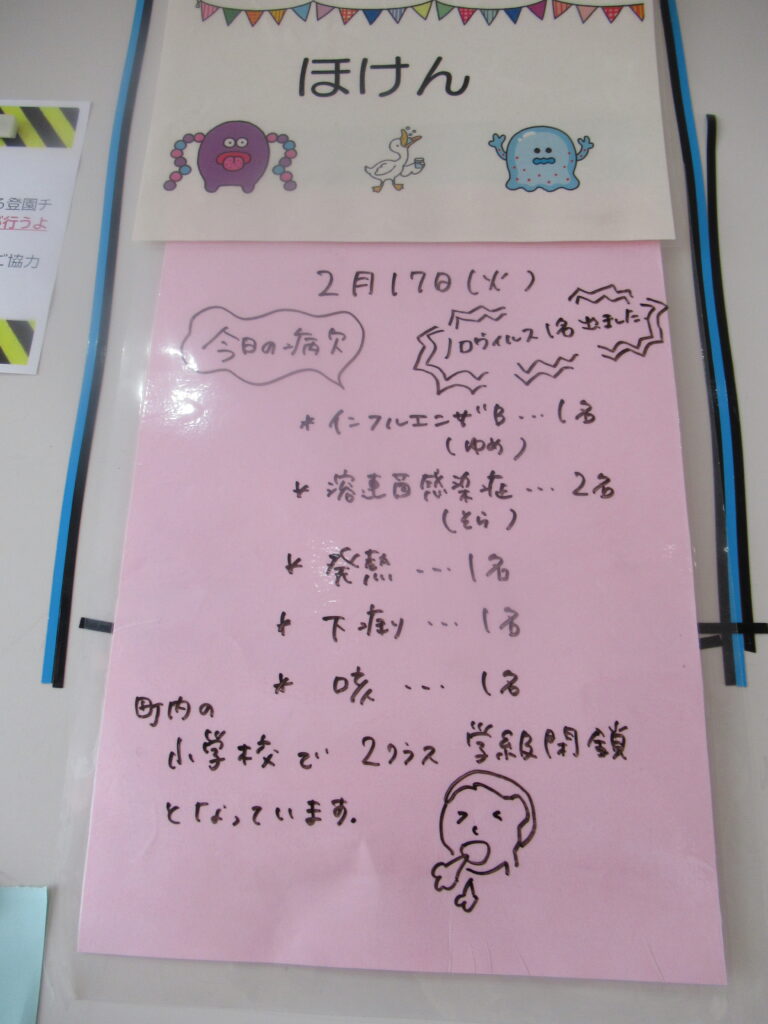 ほけん
る登園チ
行うよ
ご協力
2月17日(火)
今日の病欠
ノロウィルス1名出ました
* インフルエンザB…1名
(ゆめ)
* 溶連菌感染症…2名
(そら)
* 発熱…1名
* 下痢…1名
* 咳…1名
町内の
小学校で 2クラス 学級閉鎖
となっています.